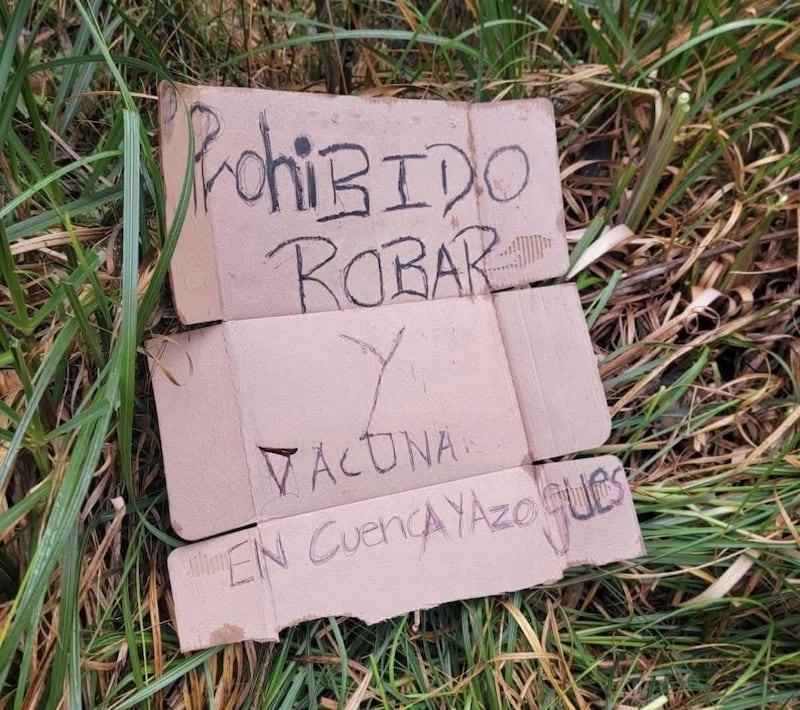 ProhiBIDO
ROBAR
Y
VACUNA
EN CuencA Y AZogues